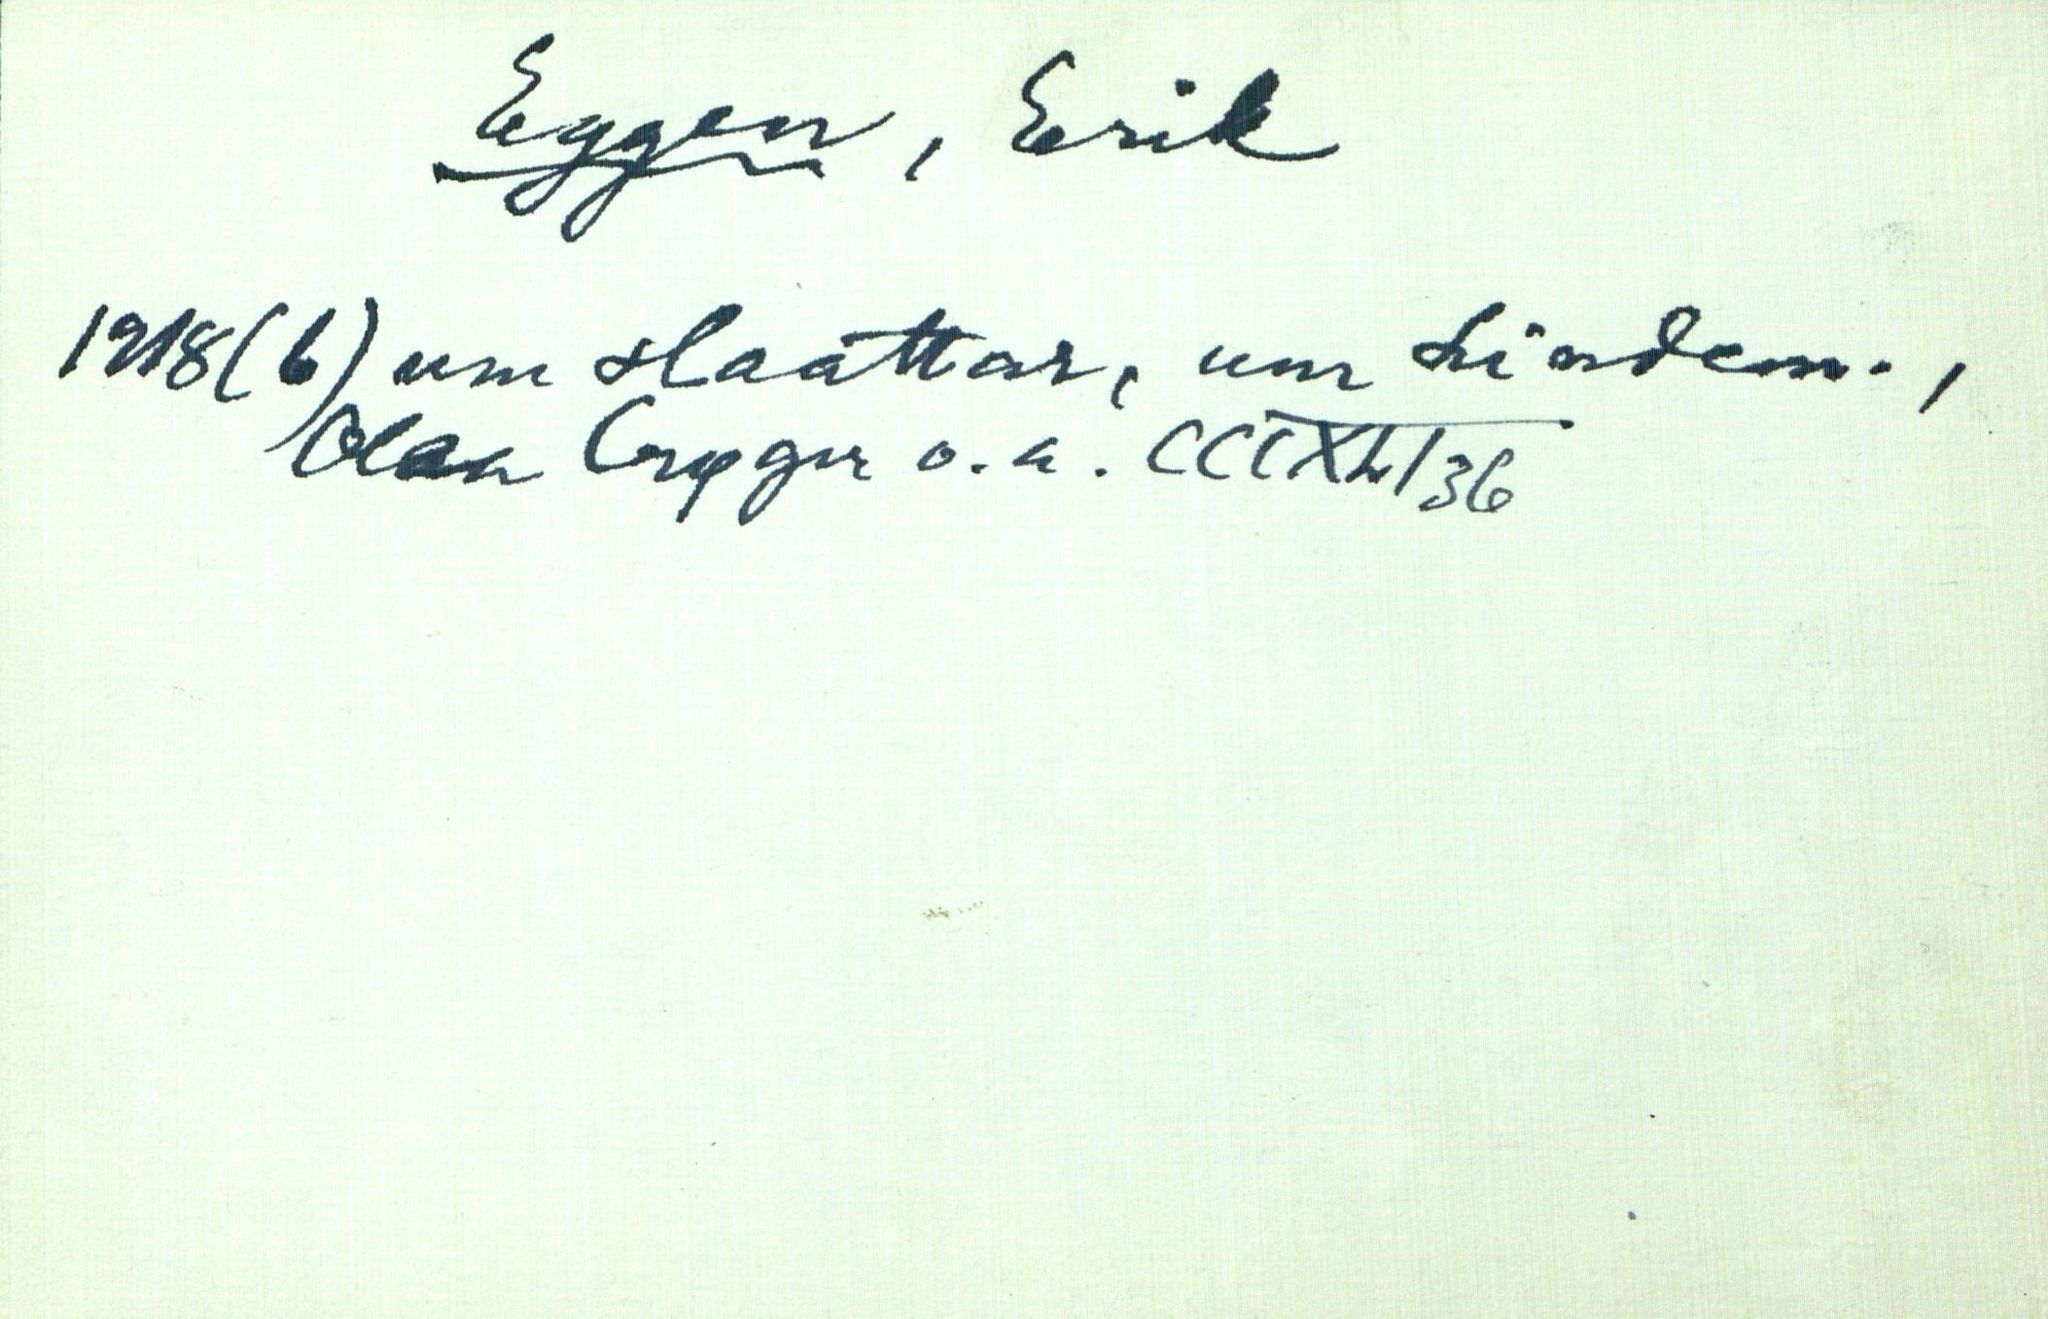 Eggen, Erik
1918(6) um slaattar, um Lindem.,
Olaa o.a. CCCXLI 36